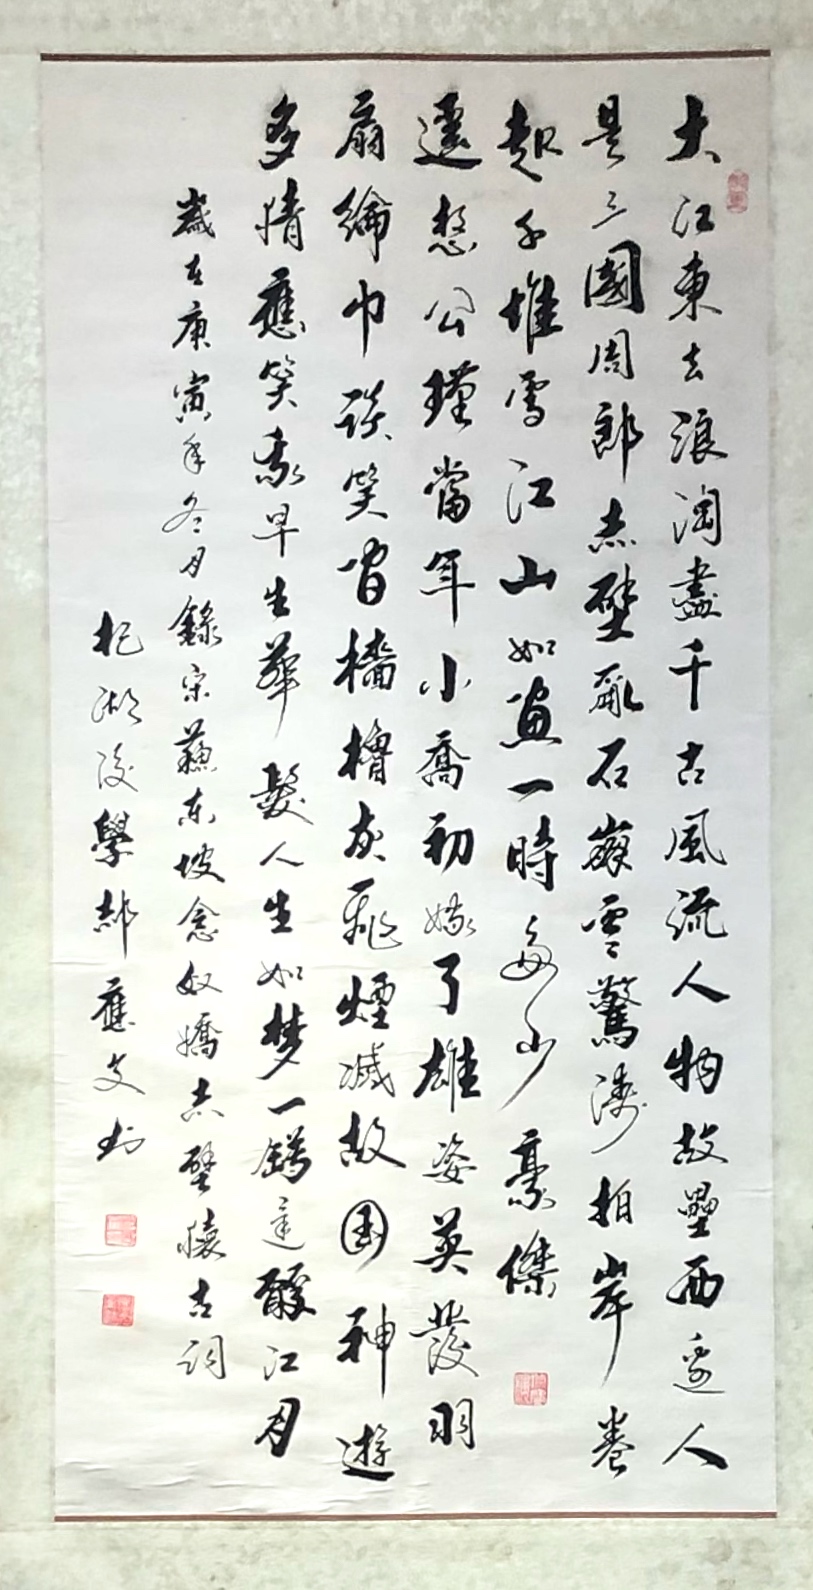 大江東去浪淘盡千古風流人物故壘西邊人
是三國周郎赤壁亂石崩雲驚濤拍岸卷
起千堆雪江山如畫一時多少豪傑
遙想公瑾當年小喬初嫁了雄姿英發羽
扇綸巾談笑間檣櫓灰飛煙滅故国神遊
多情應笑我早生華髮人生如梦一罇還酹江月
歲在庚寅年冬月錄宋蘇東坡念奴嬌赤壁懷古詞
杞湖後學郝應文書